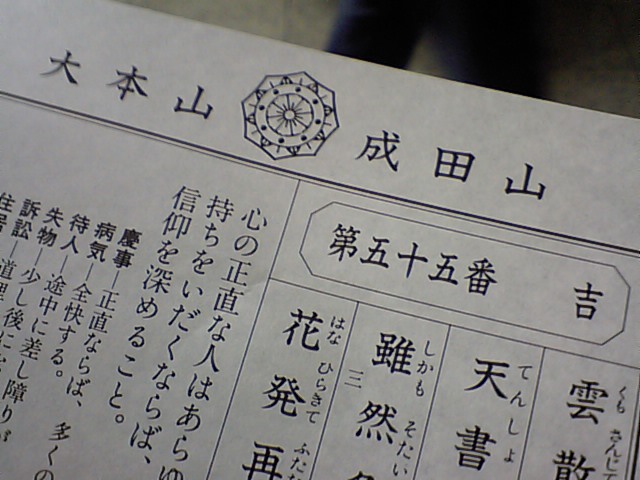 大本山 成田山
第五十五番 吉
雲散
くも さんじて
天書
てんしょ
雖然
しかも そたい
三
花発再
はな ひらきて ふたた
心の正直な人はあらゆ
持ちをいだくならば、
信仰を深めること。
慶事―正直ならば、多くの
病気―全快する。
待人―途中に差し障りが
失物―少し後に
訴訟―道理
住居